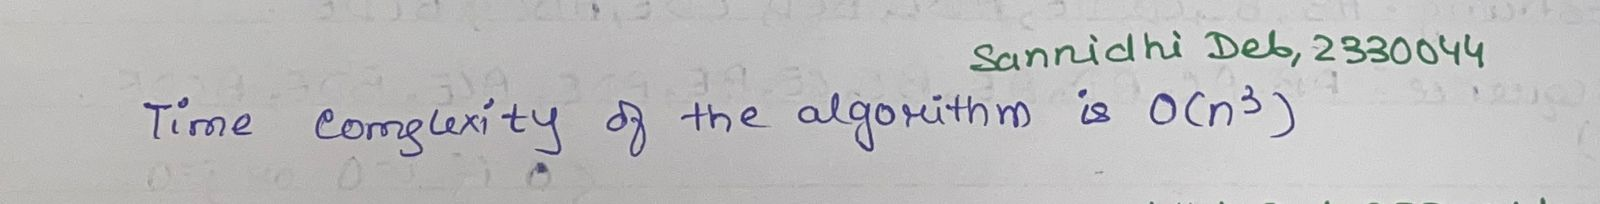 Sannidhi Deb, 2330044
Time complexity of the algorithm is O(n³)